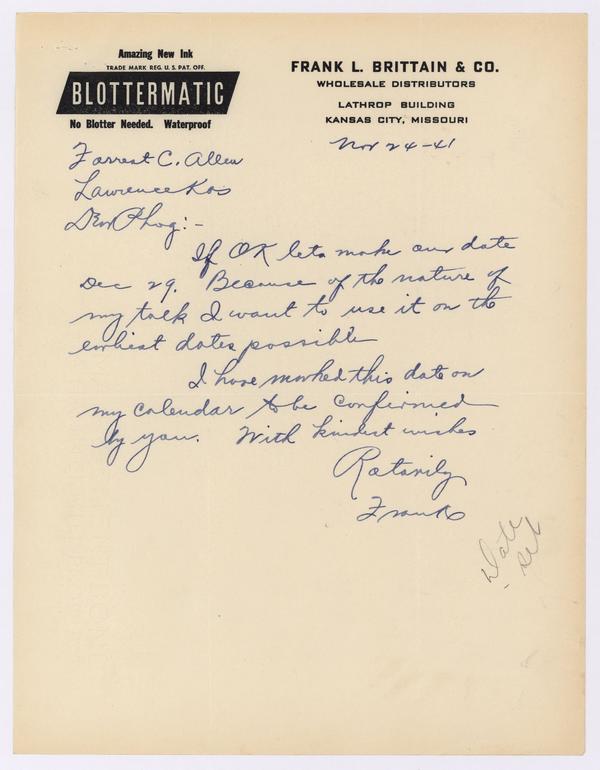 Amazing New Ink
TRADE MARK REG. U.S. PAT. OFF.
BLOTTERMATIC
No Blotter Needed. Waterproof
FRANK L. BRITTAIN & CO.
WHOLESALE DISTRIBUTORS
LATHROP BUILDING
KANSAS CITY, MISSOURI
Nov 24-41
Forrest C. Allen
Lawrence Kas
Dear Phog:-
If OK lets make our date
Dec 29. Because of the nature of
my talk I want to use it on the
earliest dates possible
I have marked this date on
my calendar to be confirmed
by you. With kindest wishes
Rotarily
Frank
Date
set